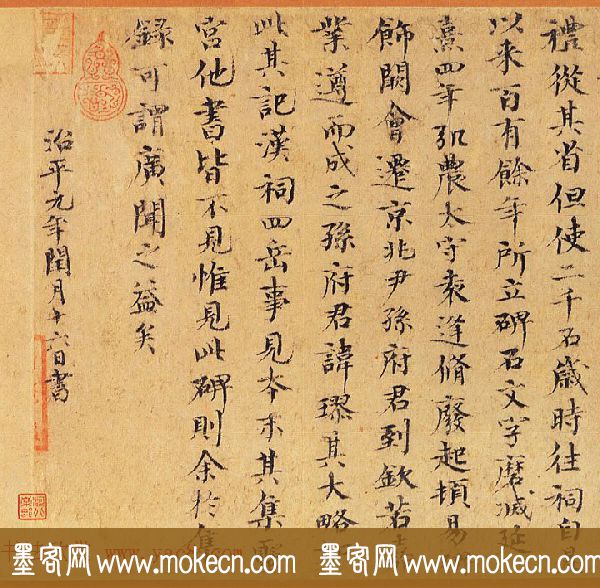 禮從其省但使二千石歲時往祠自
以来百有餘年所立碑石文字磨滅延
熹四年弘農太守袁逢脩廢起頓易
飾闕會遷京兆尹孫府君到欽若
業遵而成之孫府君諱璆其大略
此其記漢祠四岳事見本末其集
宮他書皆不見惟見此碑則余於集
録可謂廣聞之益矣
治平元年閏月十六日書
墨客网 www.mokecn.com 墨客网 www.mokecn.com